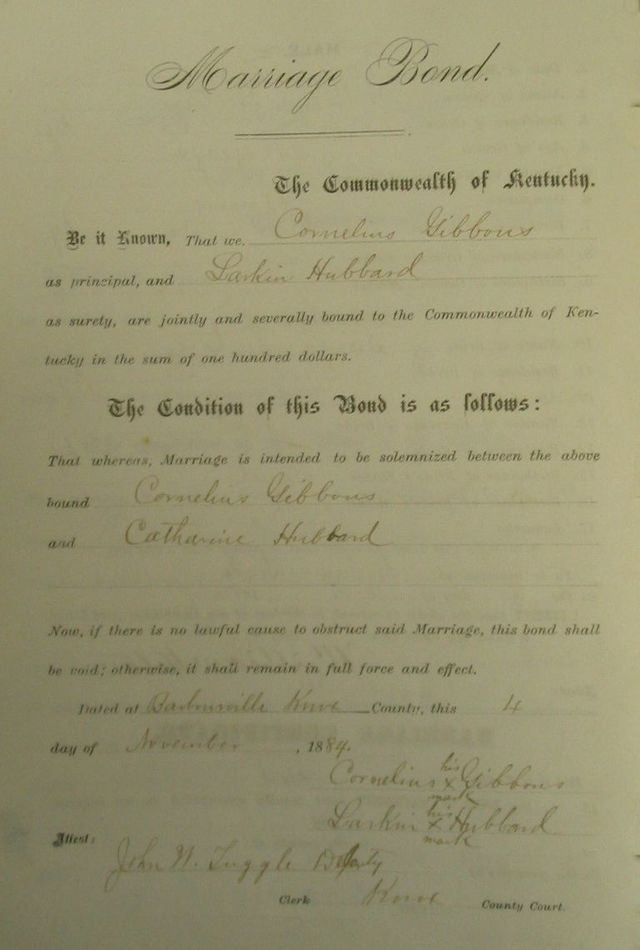 Marriage Bond.
The Commonwealth of Kentucky.
Be it Known, That we, Cornelius Gibbons
as principal, and Larkin Hubbard
as surety, are jointly and severally bound to the Commonwealth of Ken-
tucky in the sum of one hundred dollars.
The Condition of this Bond is as follows:
That whereas, Marriage is intended to be solemnized between the above
bound Cornelius Gibbons
and Catharine Hubbard
Now, if there is no lawful cause to obstruct said Marriage, this bond shall
be void; otherwise, it shall remain in full force and effect.
Dated at Barbourville Knox County, this 4
day of November, 1884.
his
Cornelius x Gibbons
mark
his
Larkin x Hubbard
mark
Attest:
John W. Tuggle
Clerk Knox County Court.